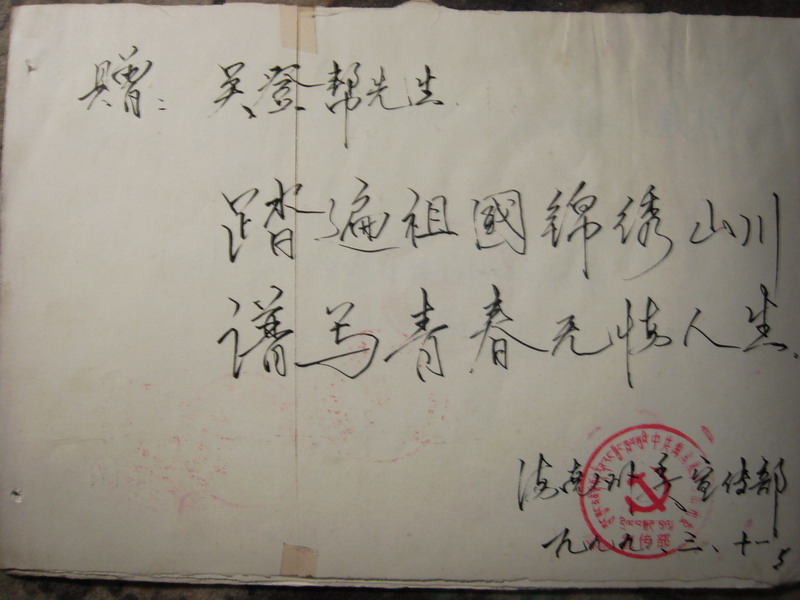 赠：吴登帮先生
踏遍祖國锦绣山川
谱写青春无悔人生
海南州委宣传部
一九九九.三.十一